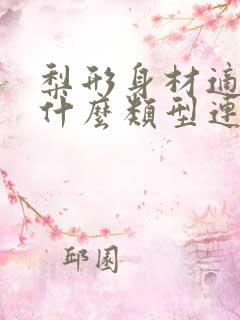 梨形身材適
什麼類型連
邱園